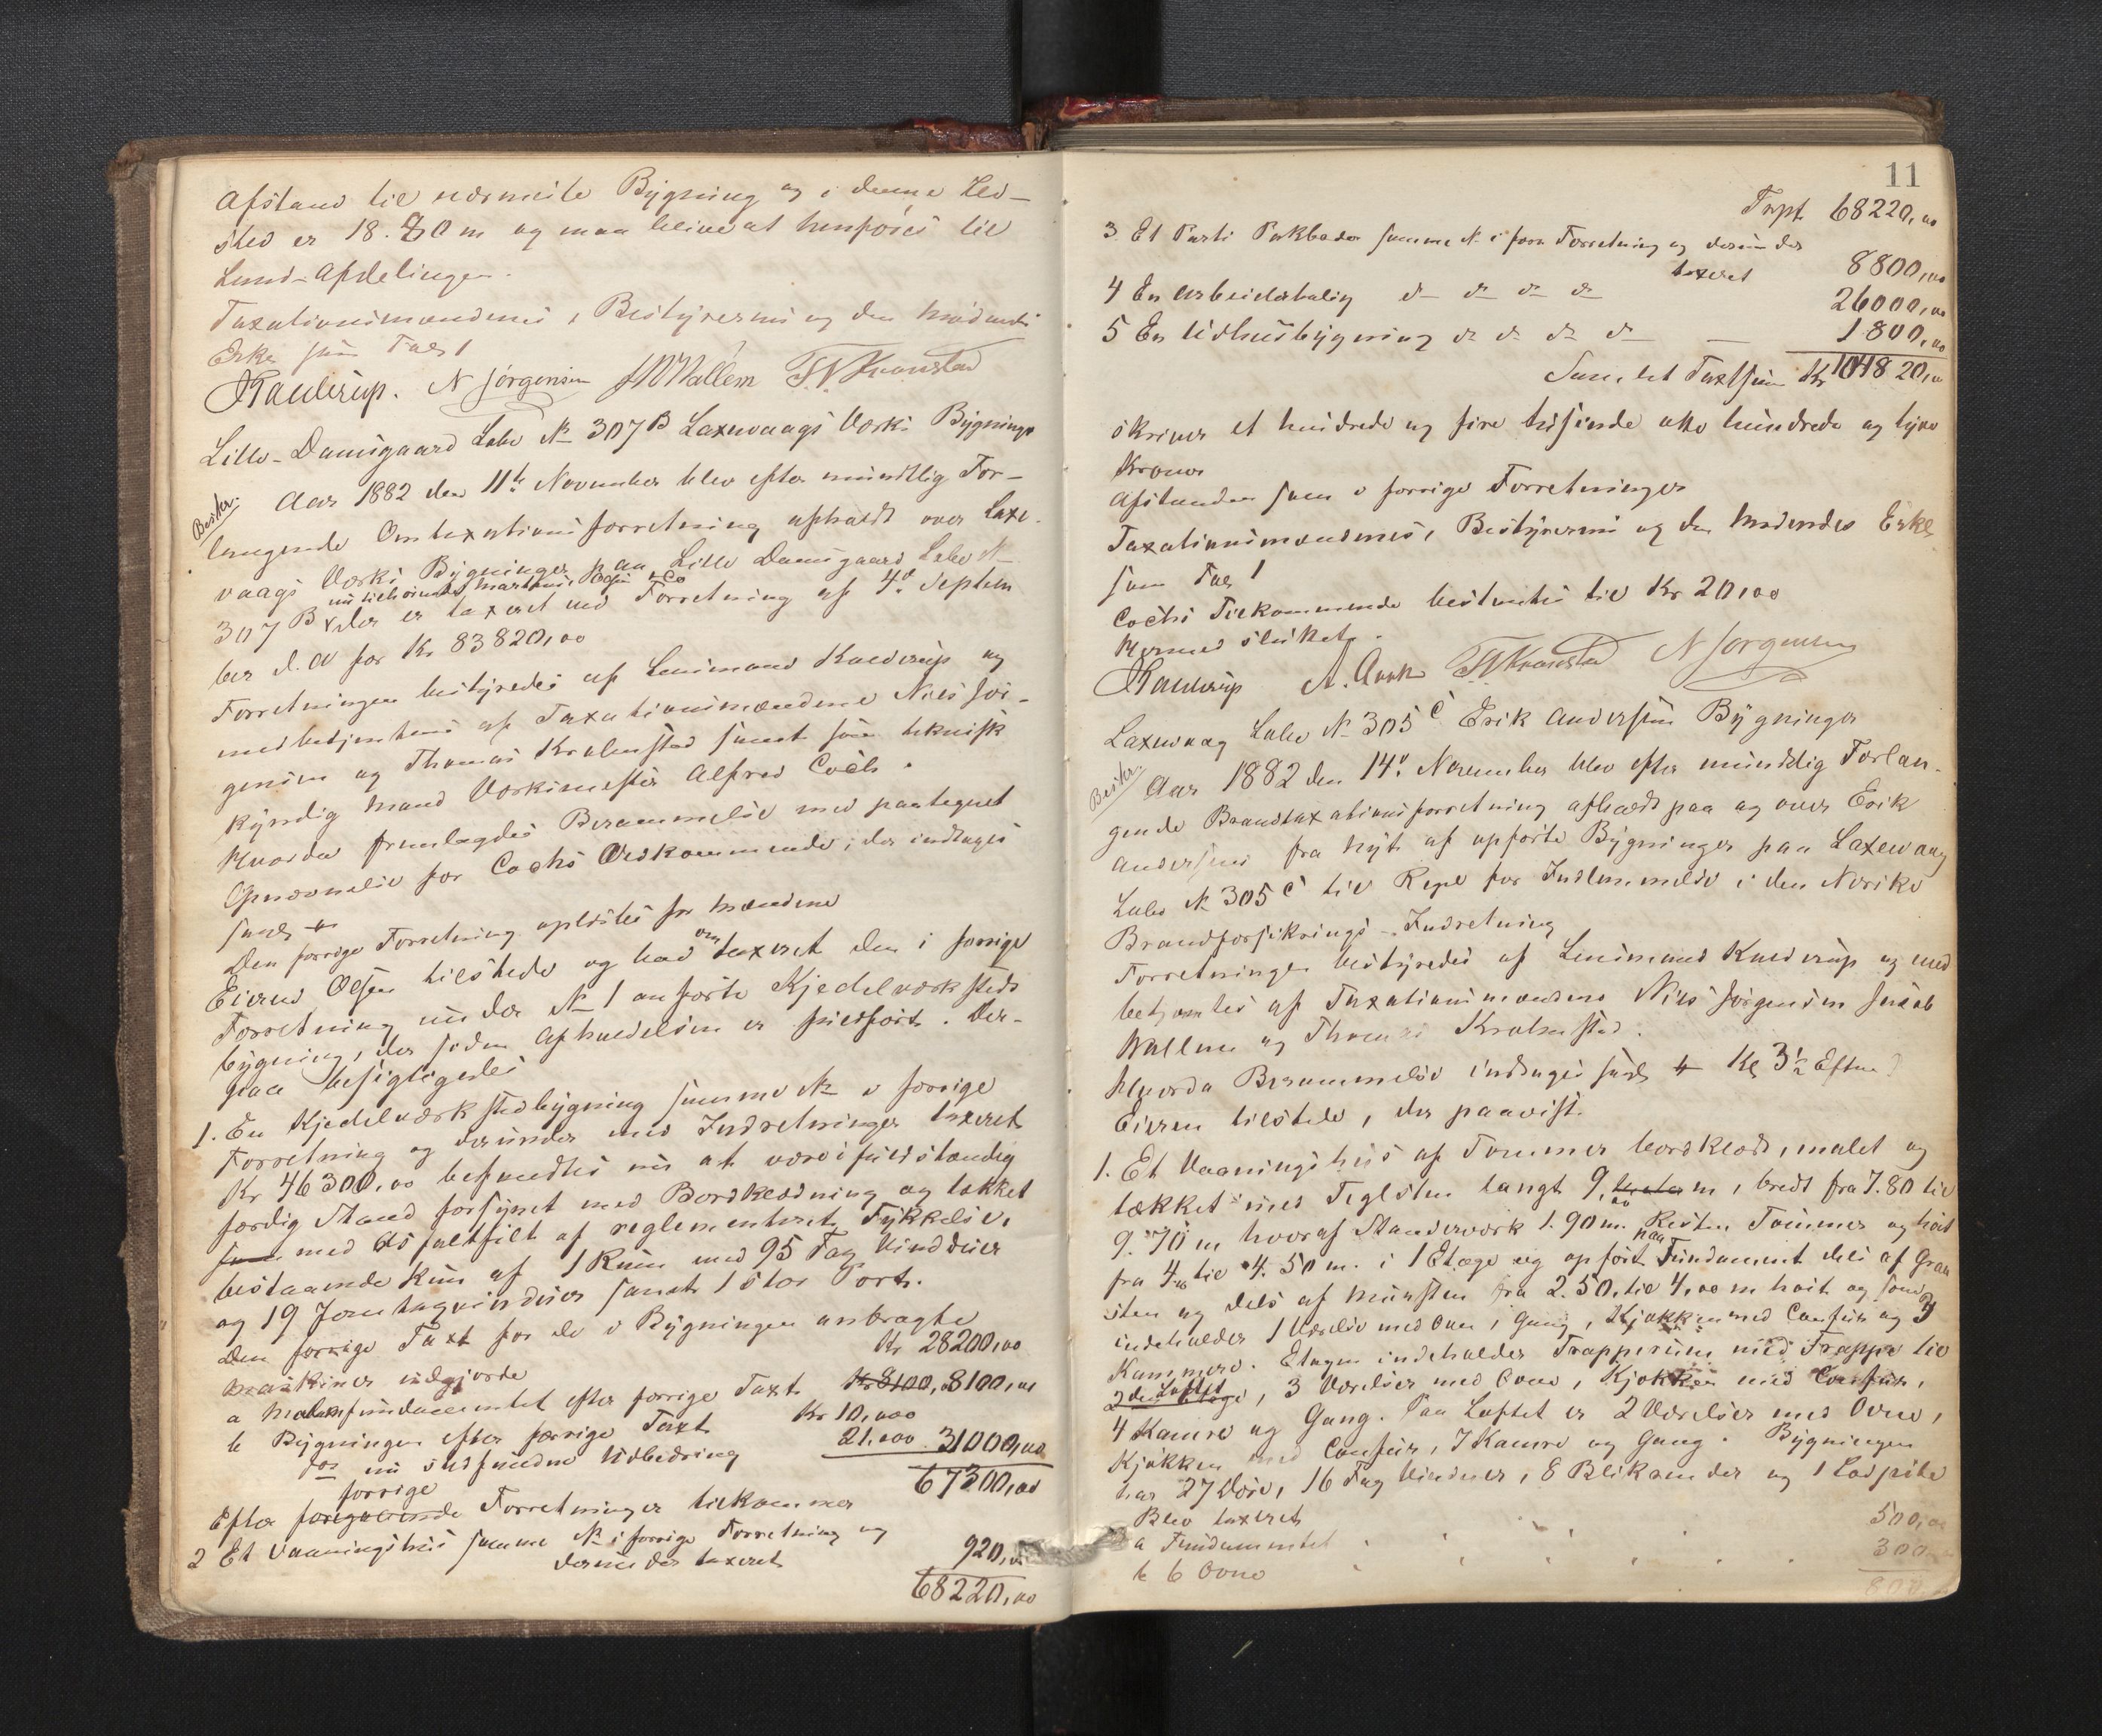 Afstand til nærmeste Bygning og i denne Ud-
sted er 18.80 m og maa blive at henføres til
Land-Afdelingen.
Taxationsmændenes, Bestyrerens og den mødende
Enke som Fol 1
JKaulerup. N Jørgensen JMWallem ThKvanstad
Lille-Damsgaard Løbe № 307 B Laxevaags Værks Bygninger
Besker.
Aar 1882 den 11te November blev efter mundtlig For-
langende Omtaxationsforretning afholdt over Laxe-
vaags Værks Bygninger paa Lille Damsgaard Løbe №
nu tilhørende Martens, & Co
307 B x der er taxeret ved Forretning af 4de Septem
ber d. A for Kr 83820,00
Forretningen bestyredes af Lensmand Kaulerup og
medbetjentes af Taxationsmændene Niels Jør-
gensen og Thomas samt som teknisk
kyndig Mand Værksmester Alfred Coch.
Hvorda fremlagdes Berammelse med paategnet
Opnævnelse for Cochs Vedkommende; der indtages
saal
Den forrige Forretning oplæstes for Mændene
Eierne Olsen tilstede og bad omtaxeret den i forrige
Forretning under № 1 anførte Kjedelværksteds
bygning, der siden Afholdelsen er fuldført. Der-
paa besigtigedes
1. En Kjedelværkstedbygning samme № i forrige
Forretning og derunder med Indretninger taxeret
Kr 46300,00 befandtes nu at være i fuldstændig
færdig Stand forsynet med Bordklædning og takket
med Asfaltfilt af reglementeret Tykkelse,
bestaaende kun af 1 Rum med 95 Fag Vinduer
og 19 Jerntagvinduer samt 1 stor Port.
Den forrige Taxt for de i Bygningen anbragte
Maskiner udgjorde Kr 28200,00
a Maskinfundamentet efter forrige Taxt Kr 8100, 8100,00
b Bygningen efter forrige Taxt Kr 10,000
for nu stedfunden Udbedring 21,000 31000,00
67300,00
forrige
Efter foregaaende Forretninger tilkommer
2 Et Vaaningshus samme № i forrige Forretning og
derunder taxeret 920,00
68220,00
11
Trpt 68220,00
3. Et Parti Pakboder samme № i forr Forretning og derunder
taxeret 8800,00
4 En Arbeiderbolig d– d– d– d– 26000,00
5 En Udhusbygning d– d– d– d– — 1800,00
Samlet Taxtsum Kr 104820,00
skriver et hundrede og fire tusinde otte hundrede og tyve
Kroner
Afstanden som i forrige Forretninger
Taxationsmændenes, Bestyrerens og den mødendes Enke
som Fol 1
Cochs Tilkommende bestemtes til Kr 20,00
Hermed sluttet.
JKaulerup A. Coch ThKvanstad N Jørgensen
Laxevaag Løbe № 305 C Erik Andersens Bygninger
Besker.
Aar 1882 den 14de November blev efter mundtlig Forlan-
gende Brandtaxationsforretning afholdt paa og over Erik
Andersens fra Nyt af opførte Bygninger paa Laxevaag
Løbe № 305 C til for Indlemmelse i den Norske
Brandforsikrings-Indretning
Forretningen bestyredes af Lensmand Kaulerup og med
betjentes af Taxationsmændene Niels Jørgensen Jacob
Wallem og Thomas
Hvorda Berammelse indtages saal Kl 3½ Efterm
Eieren tilstede, der paaviste
1. Et Vaaningshus af Tømmer bordklædt, malet og
tækket med Teglsten langt 9,00 m, bredt fra 7.80 til
9.70 m hvoraf Standerværk 1.90 m. Resten Tømmer og høit
fra 4,00 til 4.50 m. i 1 Etage og opført paa Fundament dels af Graa
sten og dels af Mursten fra 2.50 til 4,00 m høit og som
indeholder 1 Værelse med Ovn, Gang, Kjøkken med Comfur og 3
Kammere. Etagen indeholder Trapperum med Trappe til
Loftet
2den Etage, 3 Værelser med Ovne, Kjøkken med Comfur,
4 Kamre og Gang. Paa Loftet er 2 Værelser med Ovne,
Kjøkken med Comfur, 7 Kamre og Gang. Bygningen
har 27 Døre, 16 Fag Vinduer, 8 Blikrender og 1 Lodpibe
Blev taxeret
a Fundamentet 500,00
b 6 Ovne 300
800